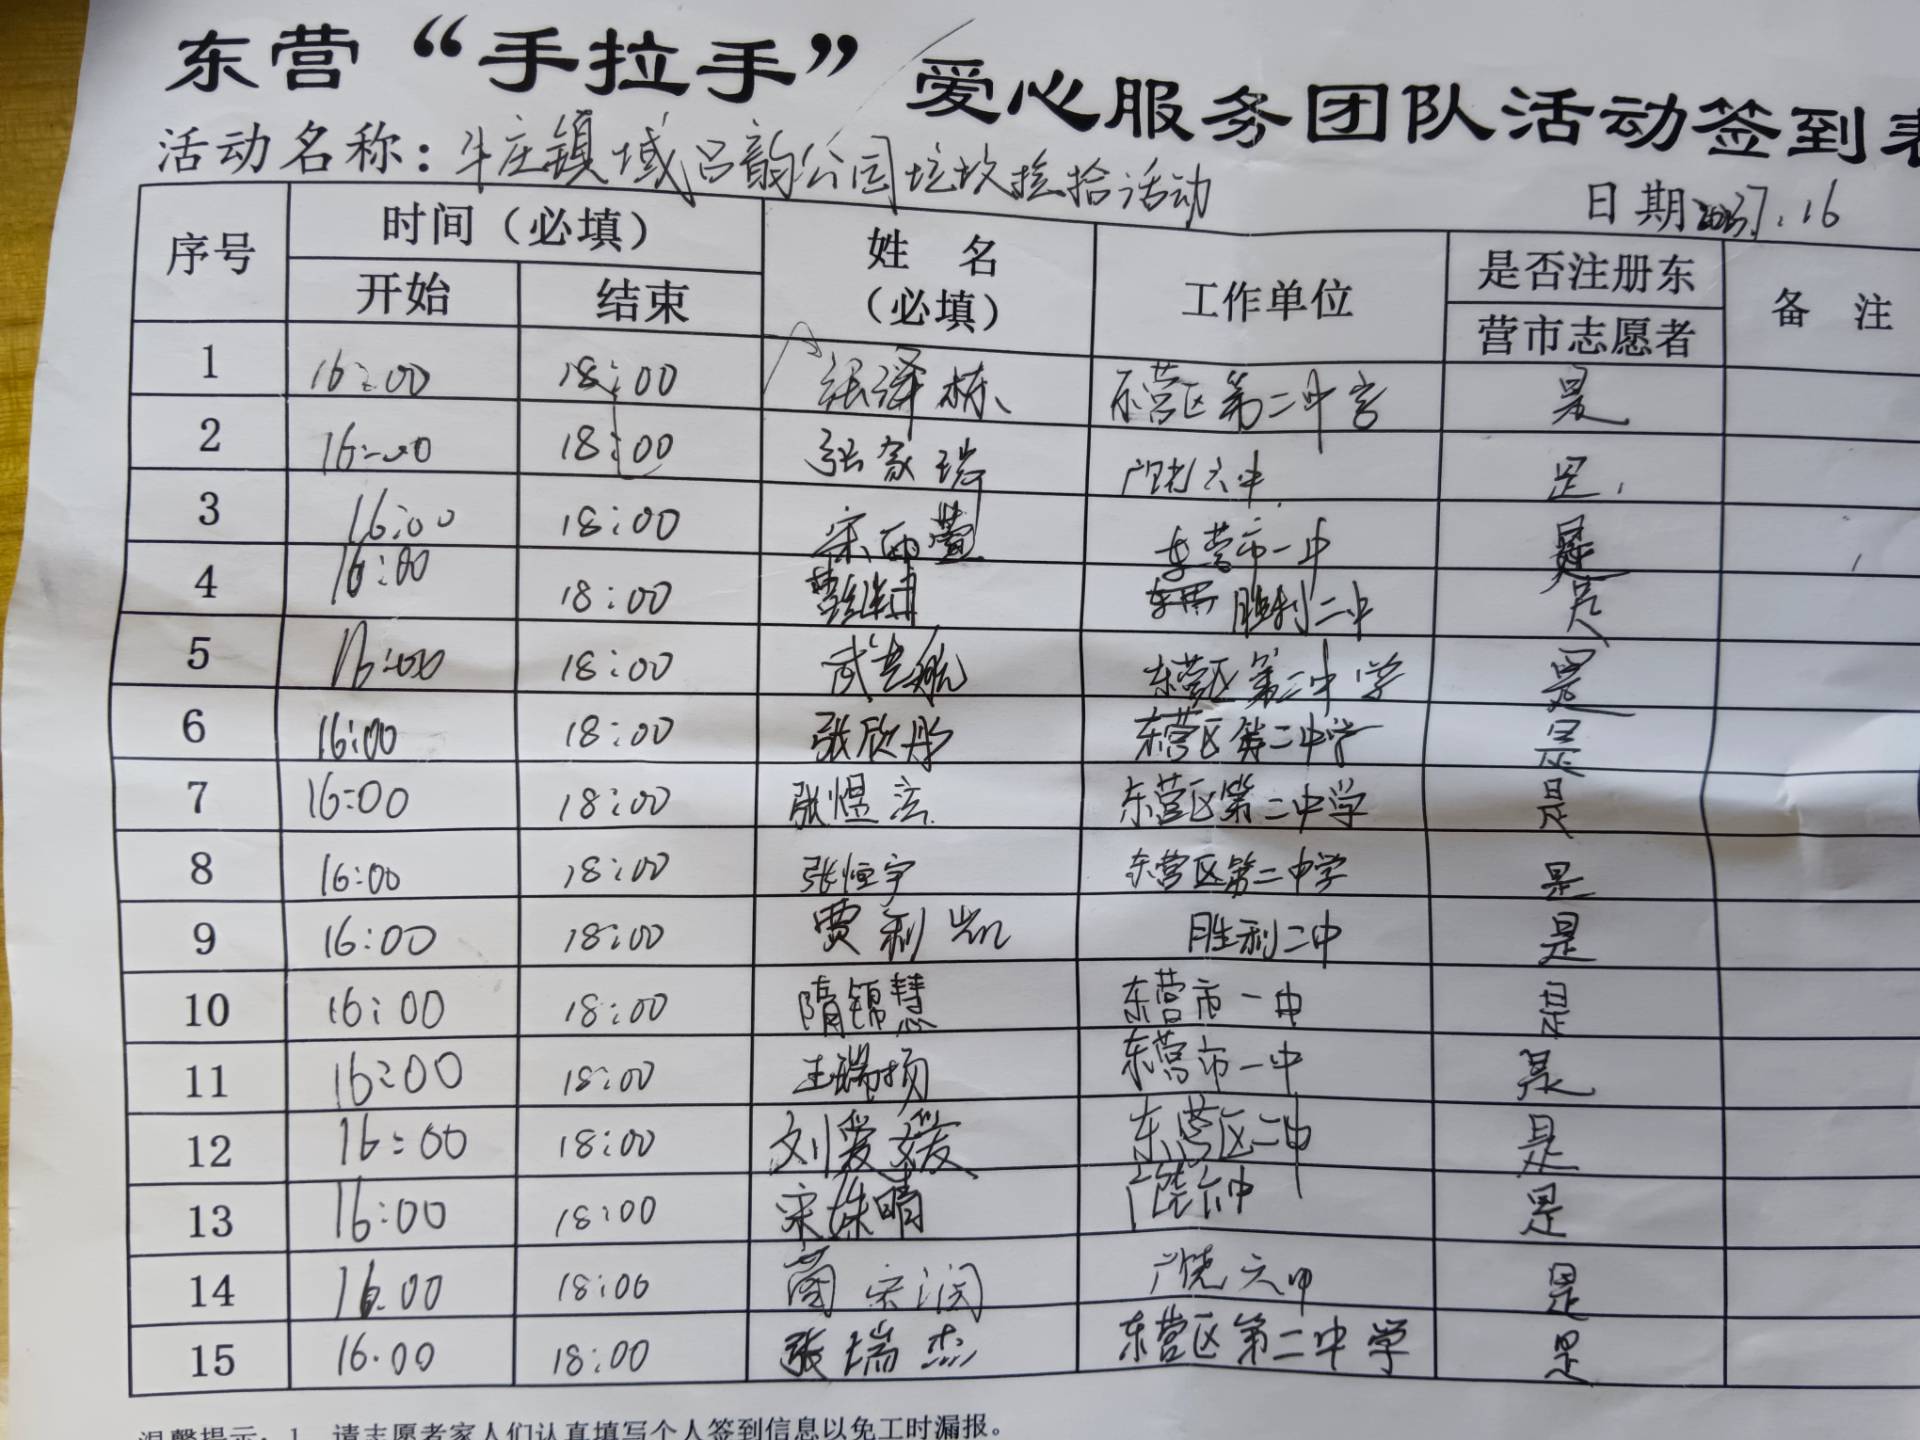 东营“手拉手”爱心服务团队活动签到表
活动名称：牛庄镇域吕韵公园垃圾捡拾活动
日期 2023.7.16
序号 时间（必填） 姓 名（必填） 工作单位 是否注册东营市志愿者 备 注
开始 结束
1 16:00 18:00 张泽栋 东营区第二中学 是
2 16:00 18:00 张家瑞 广饶六中 是
3 16:00 18:00 宋雨萱 东营市一中 是
4 16:00 18:00 胜利二中 是
5 16:00 18:00 武志航 东营区第二中学 是
6 16:00 18:00 张欣彤 东营区第二中学 是
7 16:00 18:00 张煜 东营区第二中学 是
8 16:00 18:00 张恒宇 东营区第二中学 是
9 16:00 18:00 贾利凯 胜利二中 是
10 16:00 18:00 隋锦慧 东营市一中 是
11 16:00 18:00 王瑞扬 东营市一中 是
12 16:00 18:00 刘爱媛 东营区二中 是
13 16:00 18:00 宋姝晴 广饶六中 是
14 16.00 18:00 广饶六中 是
15 16.00 18:00 张瑞杰 东营区第二中学 是
温馨提示：1、请志愿者家人们认真填写个人签到信息以免工时漏报。